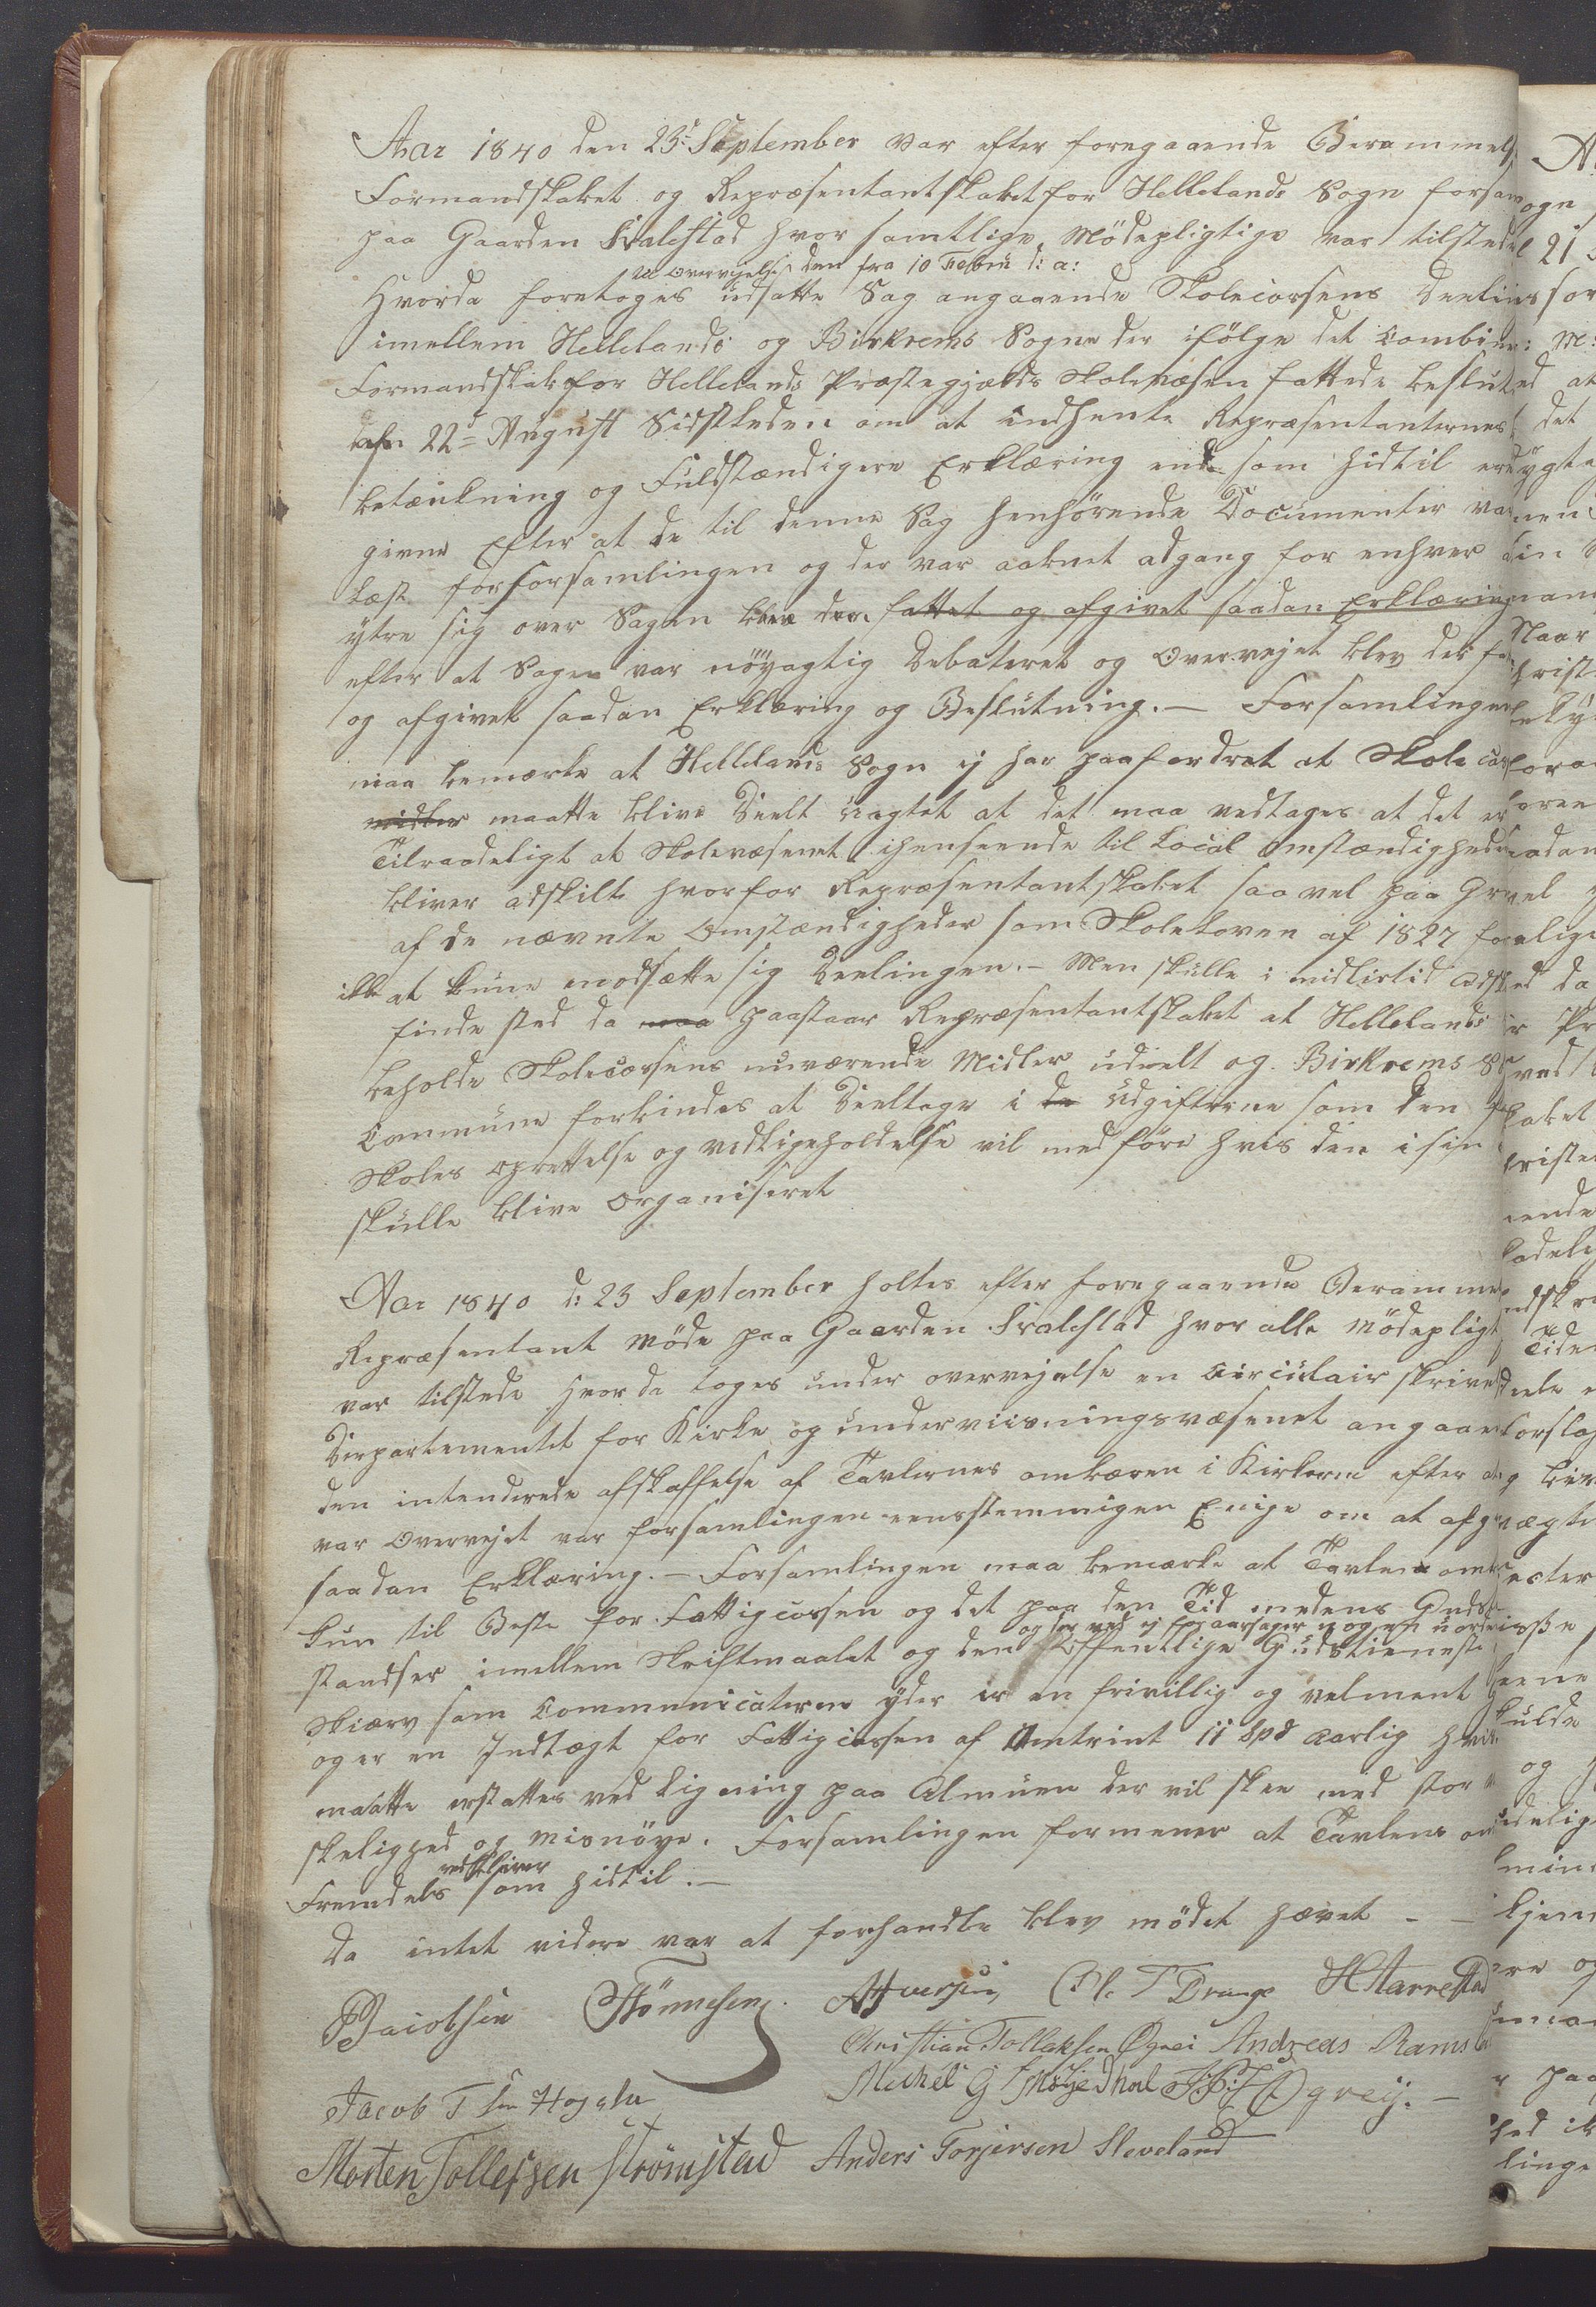 Aar 1840 den 23d September var efter foregaaende Berammels
Formandskabet og Repræsentantskabet for Hellelands Sogn forsam
paa Gaarden Svalestad hvor samtlige Mødepligtige var tilstede
til Overvejelse den fra 10 Februi d: a:
Hvorda foretoges udsatte Sag angaaende Skolecassens Deeling
imellem Hellelands og Birkrems Sogne der ifölge det Combin:
Formandskab for Hellelands Præstegjælds Skolevæsen fattede beslut
den 22d August Sidstleden om at indhente Repræsentanternes
betænkning og Fuldstændigere Erklæring end som hidtil er
given Efter at de til denne Sag henhørende Documenter var
læst for forsamlingen og der var aabnet adgang for enhver
ytre sig over Sagen blev der fattet og afgivet saadan Erklæring
efter at Sagen var nöyagtig Debateret og Overvejet blev der fa
og afgivet saadan Erklæring og Beslutning. — Forsamlingen
maa bemærke at Hellelands Sogn ej har paafordret at Skole cas
midler maatte blive Deelt uagtet at det maa vedtages at det er
Tilraadeligt at Skolevæsenet ihenseende til Local omstændigheder
bliver adskilt hvorfor Repræsentantskabet saa vel paa Gr
af de nævnte Omstændigheder som Skoleloven af 1827 for
ikke at kune modsætte sig Deelingen. — Men skulle imidlertid adsk
finde sted da maa paastaar Repræsentantskabet at Hellelands
beholde Skolecassens nuværende Midler udeelt og Birkrems S
Commune forbindes at Deeltage i de Udgifterne som den
Skoles oprettelse og vedligeholdelse vil medføre hvis den i sin
skulle blive Organiseret
Aar 1840 d: 23 September holtes efter foregaaende Beramme
Repræsentant Møde paa Gaarden Svalestad hvor alle Mødepligt
var tilstede Hvor da toges under overvejelse en Circulair skrive
Departementet for Kirke og underviisningsvæsenet angaaen
den intenderede afskaffelse af Tavlernes ombæren i Kirkerne efter at
var Overvejet var forsamlingen eensstemmigen Enige om at afgi
saadan Erklæring. — Forsamlingen maa bemærke at Tavlen om
kun til Beste for Fattigcassen og det paa den Tid medens Guds
og der ved ej foraarsager nogen uorden
standser imellem Skriftemaalet og den Offentlige Gudstieneste
Skiærv som Communicaterne yder er en frivillig og velment
og er en Indtægt for Fattigcassen af Omtrint 11 Spd aarlig hvi
maatte erstattes ved Ligning paa Almuen der vil skee med stor
skelighed og misnöye. Forsamlingen formener at Tavlens om
vedbliver
Fremdeles som hidtil. —
Da intet videre var at forhandle blev mødet hævet — —
PJacobsen Tönnesen AHversen Ole T Drange HTarrestad
Christian Tollaksen Øgrei Andreas Ramsla
Jacob T Sen Hogstu Michel G S Möjedhal Øgreij. —
Morten Tollefsen Strömstad Anders Torjersen Sleveland